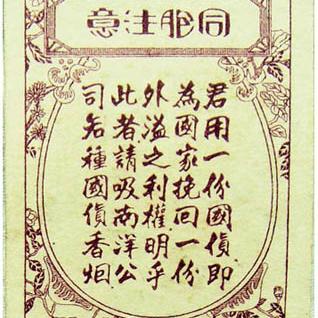 同胞注意
君用一份國貨即
為國家挽回一份
外溢之利權明乎
此者請吸南洋公
司各種國貨香烟